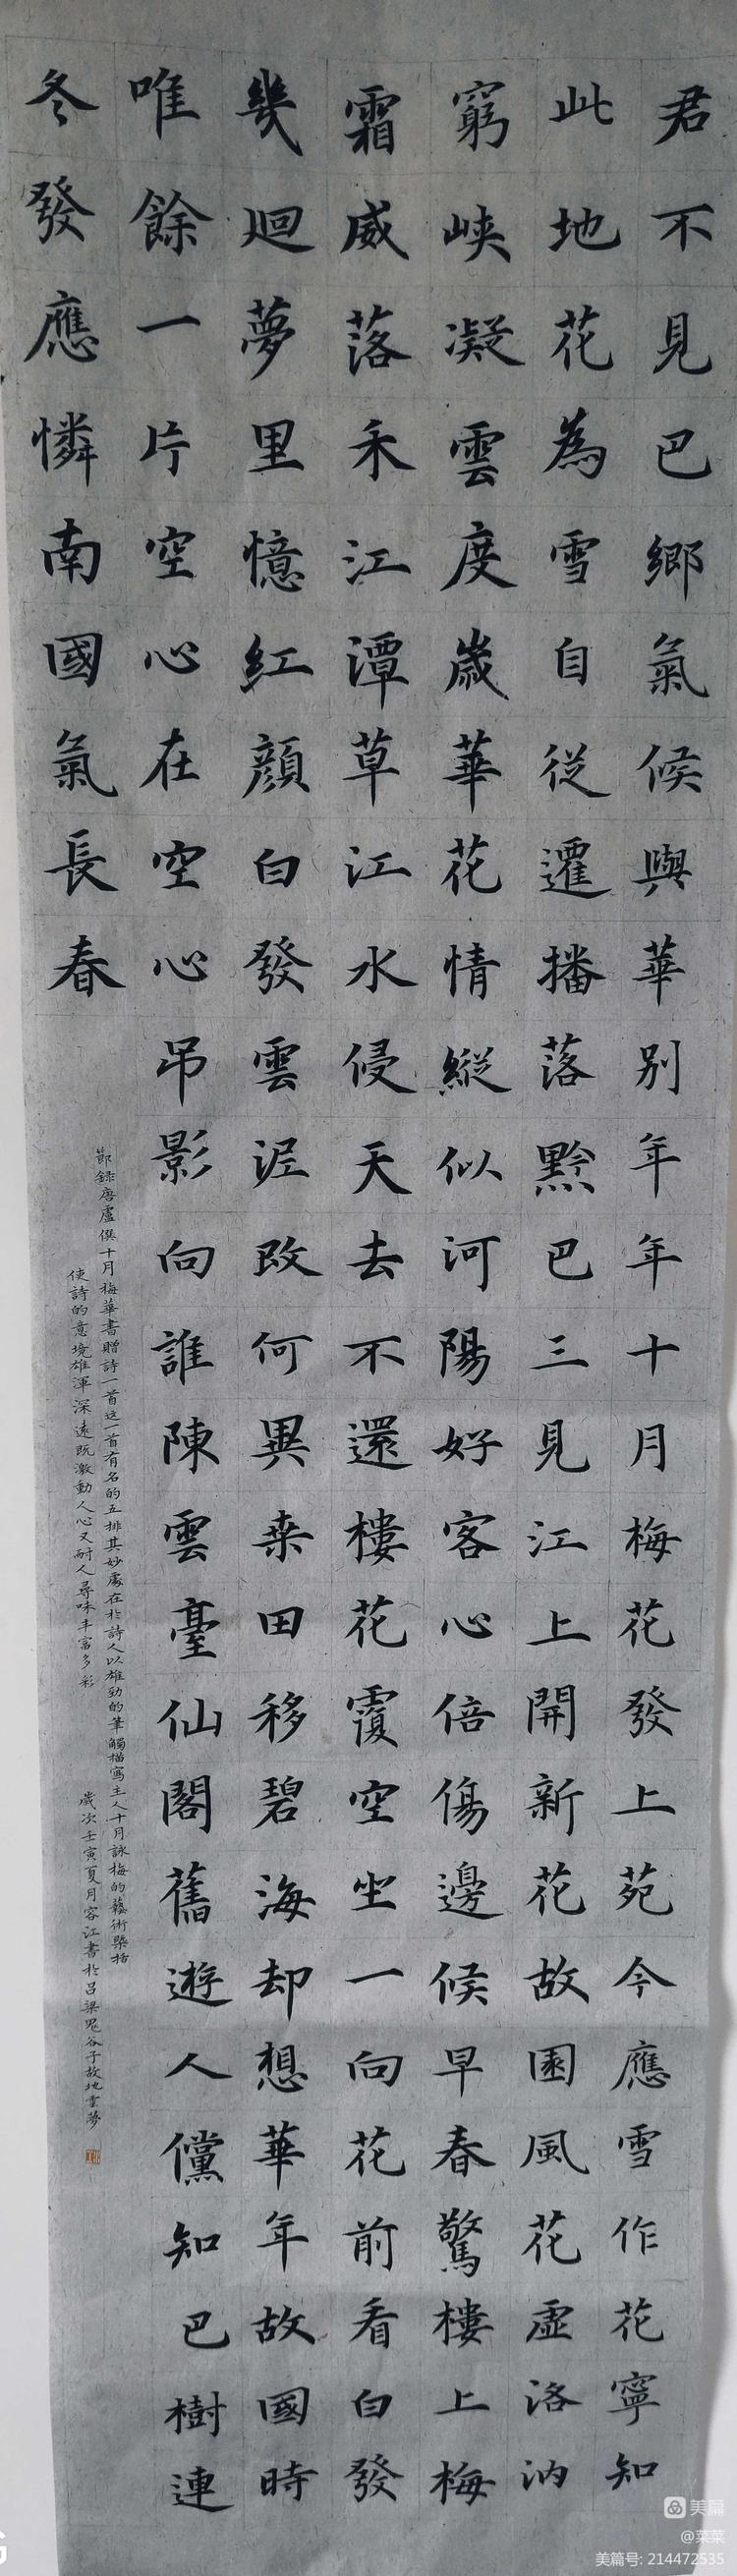 君不見巴鄉氣候與華别年年十月梅花發上苑今應雪作花寧知
此地花為雪自從遷播落黔巴三見江上開新花故園風花虛洛汭
窮峽凝雲度歲華花情縱似河陽好客心倍傷邊候早春驚樓上梅
霜威落未江潭草江水侵天去不還樓花覆空坐一向花前看白發
幾迴夢里憶紅顔白發雲泥改何異桒田移碧海却想華年故國時
唯餘一片空心在空心吊影向誰陳雲臺仙閣舊遊人儻知巴樹連
冬發應憐南國氣長春
節錄唐盧僎十月梅華書贈詩一首这一首有名的五排其妙處在於詩人以雄勁的筆觸描寫主人十月詠梅的藝術槩括
使詩的意境雄渾深遠既激動人心又耐人尋味丰富多彩
歲次壬寅夏月容江書於呂梁鬼谷子故地雲夢
美篇
@菜菜
美篇号: 214472535